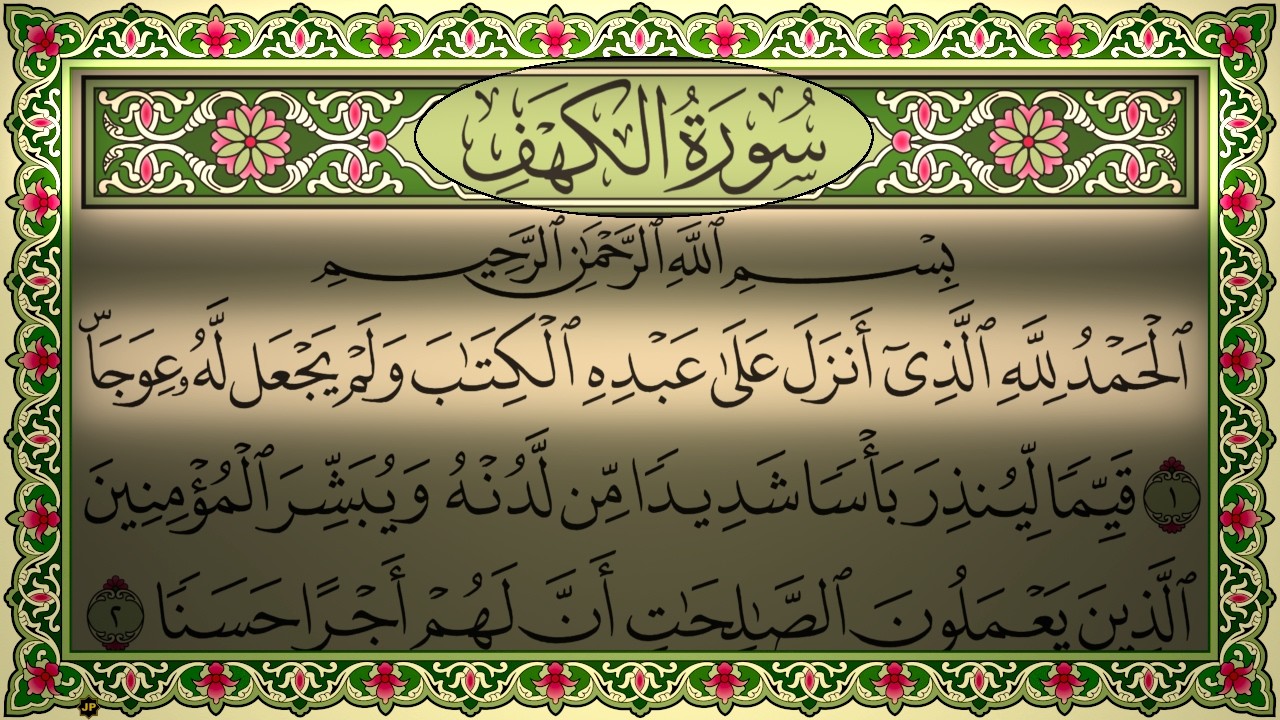 سُورَةُ الكَهَفِ
بِسْمِ ٱللَّهِ ٱلرَّحْمَٰنِ ٱلرَّحِيمِ
ٱلْحَمْدُ لِلَّهِ ٱلَّذِىٓ أَنزَلَ عَلَىٰ عَبْدِهِ ٱلْكِتَٰبَ وَلَمْ يَجْعَل لَّهُۥ عِوَجَاۜ
١ قَيِّمًا لِّيُنذِرَ بَأْسًا شَدِيدًا مِّن لَّدُنْهُ وَيُبَشِّرَ ٱلْمُؤْمِنِينَ
ٱلَّذِينَ يَعْمَلُونَ ٱلصَّٰلِحَٰتِ أَنَّ لَهُمْ أَجْرًا حَسَنًا ٢
JP